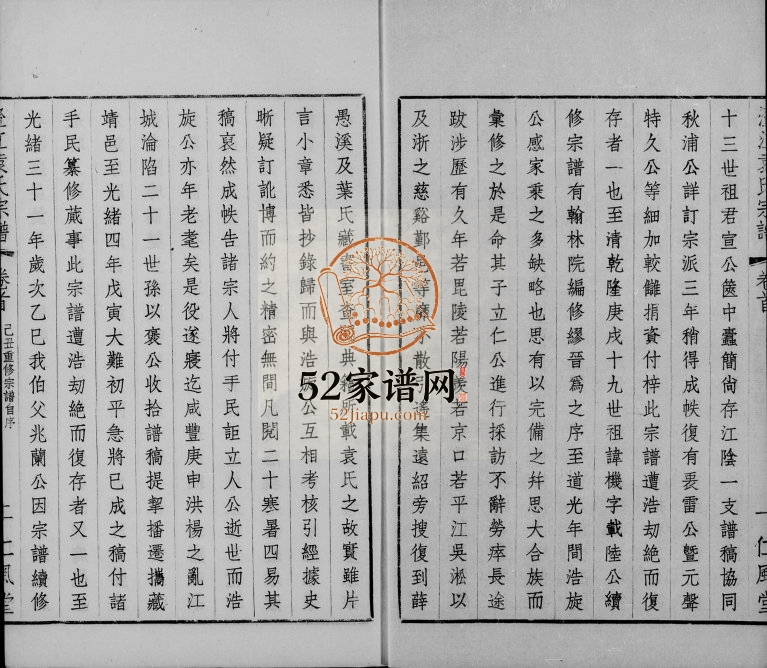 十三世祖君宣公篋中蠹簡尙存江陰一支譜稿協同
秋浦公詳訂宗派三年稍得成帙復有裘雷公曁元聲
特久公等細加較讎捐資付梓此宗譜遭浩刧絶而復
存者一也至清乾隆庚戌十九世祖諱機字載陸公續
修宗譜有翰林院編修繆晉爲之序至道光年間浩旋
公感家乘之多缺略也思有以完備之幷思大合族而
彙修之於是命其子立仁公進行採訪不辭勞瘁長途
跋涉歷有久年若毘陵若陽羨若京口若平江吳淞以
及浙之慈谿鄞 等 散 集遠紹旁搜復到薛
一 仁風堂
澄江袁氏宗譜 卷首 己丑重修宗譜自序 二 仁風堂
愚溪及葉氏藏書 查 典 載袁氏之故實雖片
言小章悉皆抄錄歸而與浩 公互相考核引經據史
晰疑訂訛博而約之精密無間凡閱二十寒暑四易其
稿裒然成帙告諸宗人將付手民詎立人公逝世而浩
旋公亦年老耄矣是役遂寢迄咸豐庚申洪楊之亂江
城淪陷二十一世孫以褒公收拾譜稿提挈播遷攜藏
靖邑至光緒四年戊寅大難初平急將已成之稿付諸
手民纂修蕆事此宗譜遭浩刧絶而復存者又一也至
光緒三十一年歲次乙巳我伯父兆蘭公因宗譜續修
52家谱网
52jiapu.com